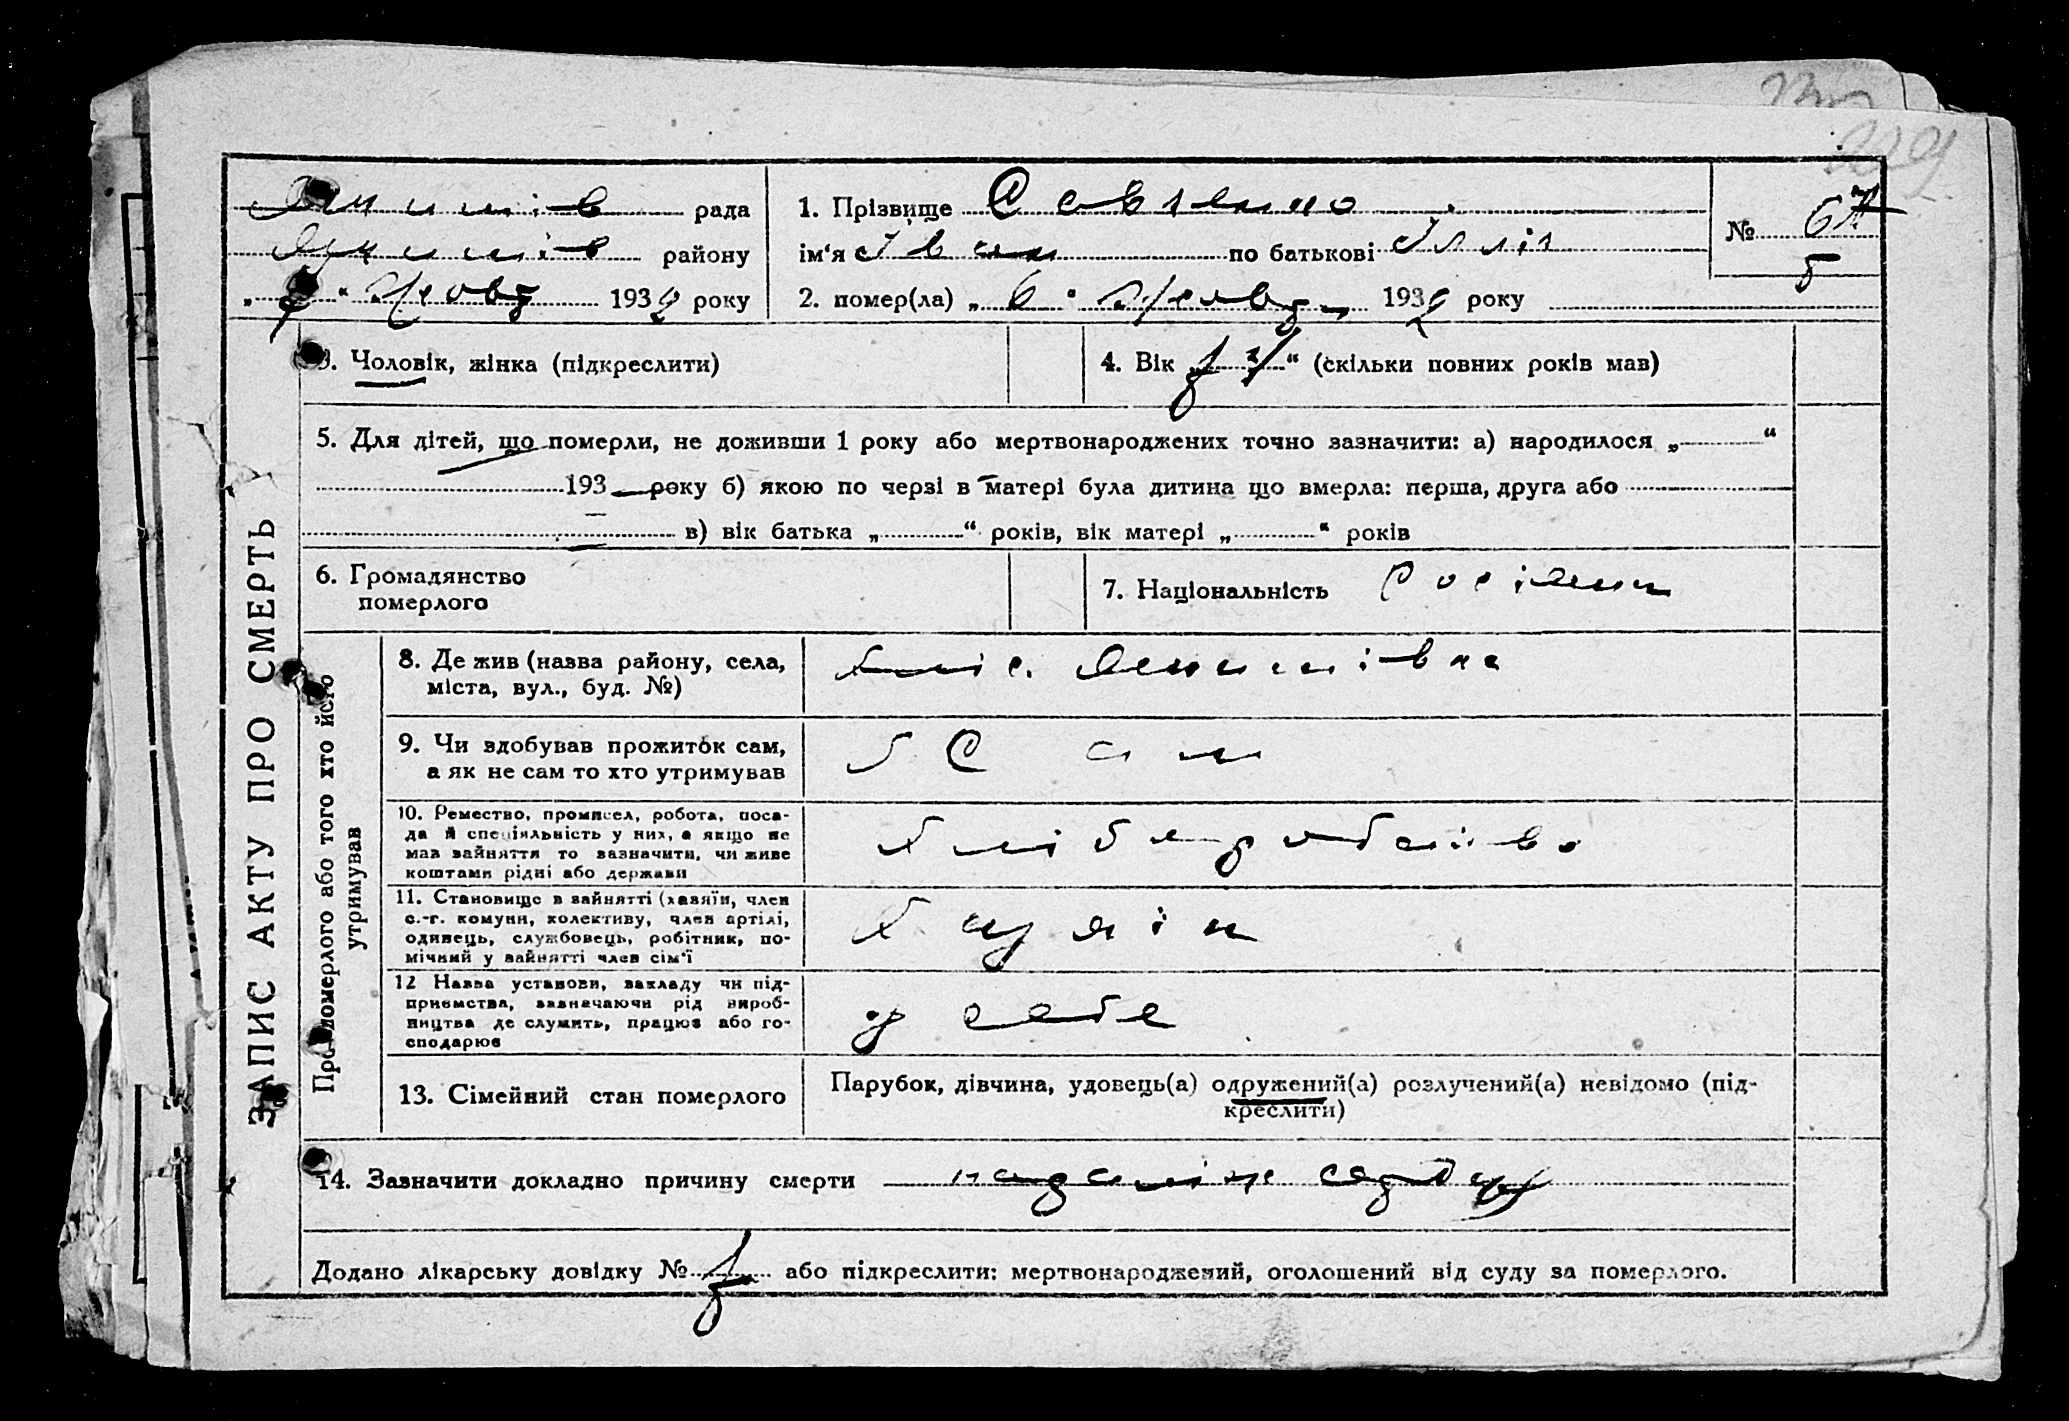 229
рада
1. Прізвище Савченко
№ 67
району
ім'я Іван по батькові Ілліч
5
„ “ Жовт 1932 року
2. помер(ла) „ 6 “ Жовт 1932 року
3. Чоловік, жінка (підкреслити)
4. Вік „ “ (скільки повних років мав)
5. Для дітей, що померли, не доживши 1 року або мертвонароджених точно зазначити: а) народилося „ “
193 року б) якою по черзі в матері була дитина що вмерла: перша, друга або
в) вік батька „ “ років, вік матері „ “ років
6. Громадянство
померлого
7. Національність Росіянин
ЗАПИС АКТУ ПРО СМЕРТЬ
Про померлого або того хто його
утримував
8. Де жив (назва району, села,
міста, вул., буд. №)
9. Чи здобував прожиток сам,
а як не сам то хто утримував
Сам
10. Ремество, промисел, робота, поса-
да й спеціяльність у них, а якщо не
мав зайняття то зазначити, чи живе
коштами рідні або держави
Хліборобство
11. Становище в зайнятті (хазяїн, член
с.-г. комуни, колективу, член артілі,
одинець, службовець, робітник, по-
мічний у зайнятті член сім'ї
Хазяїн
12 Назва установи, закладу чи під-
приємства, зазначаючи рід вироб-
ництва де служить, працює або го-
сподарює
у себе
13. Сімейний стан померлого
Парубок, дівчина, удовець(а) одружений(а) розлучений(а) невідомо (під-
креслити)
14. Зазначити докладно причину смерти параліч серця
Додано лікарську довідку № або підкреслити: мертвонароджений, оголошений від суду за померлого.